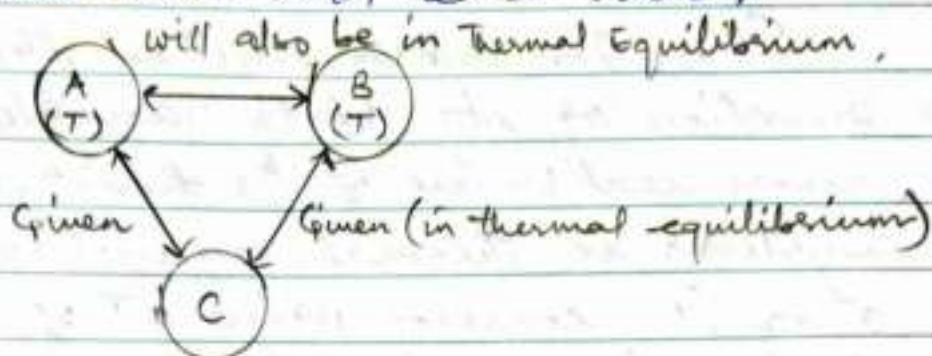 will also be in Thermal Equilibrium.
A B
(T) (T)
Given Given (in thermal equilibrium)
C